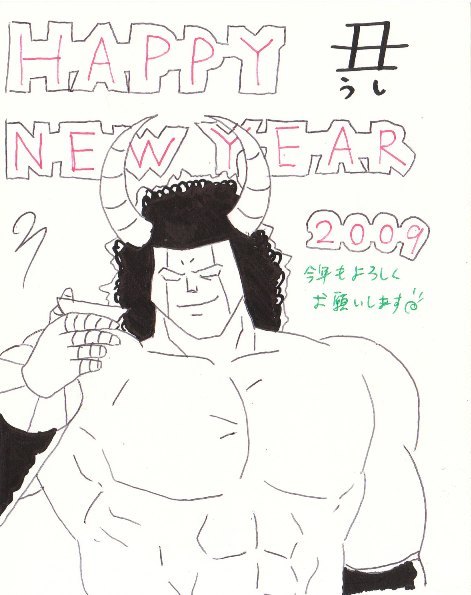 HAPPY
丑
うし
NEW YEAR
2009
今年もよろしく
お願いします